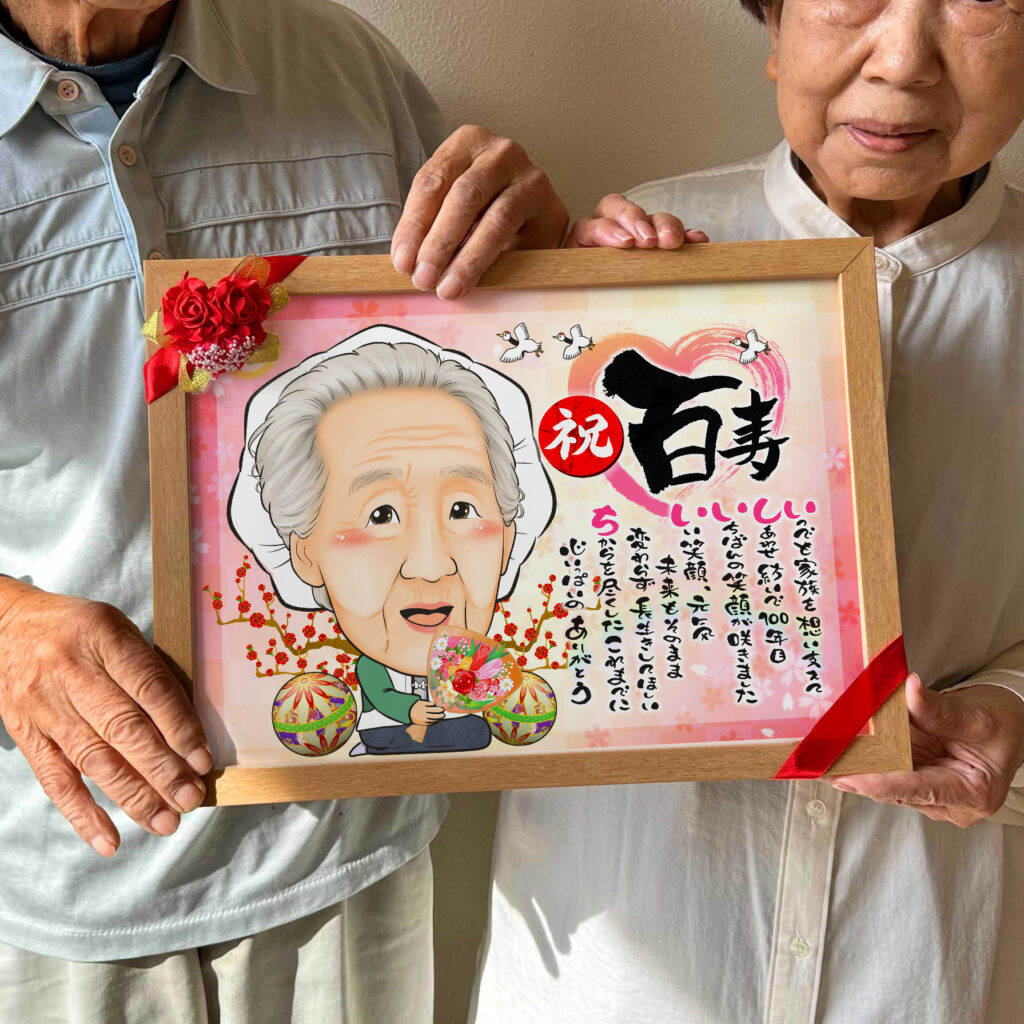 祝
百寿
いつでも家族を想い支えて
しあわせ紡いで100年目
いちばんの笑顔が咲きました
いい笑顔、元気
未来もそのまま
変わらず長生きしてほしい
ちからを尽くしたこれまでに
心いっぱいのありがとう